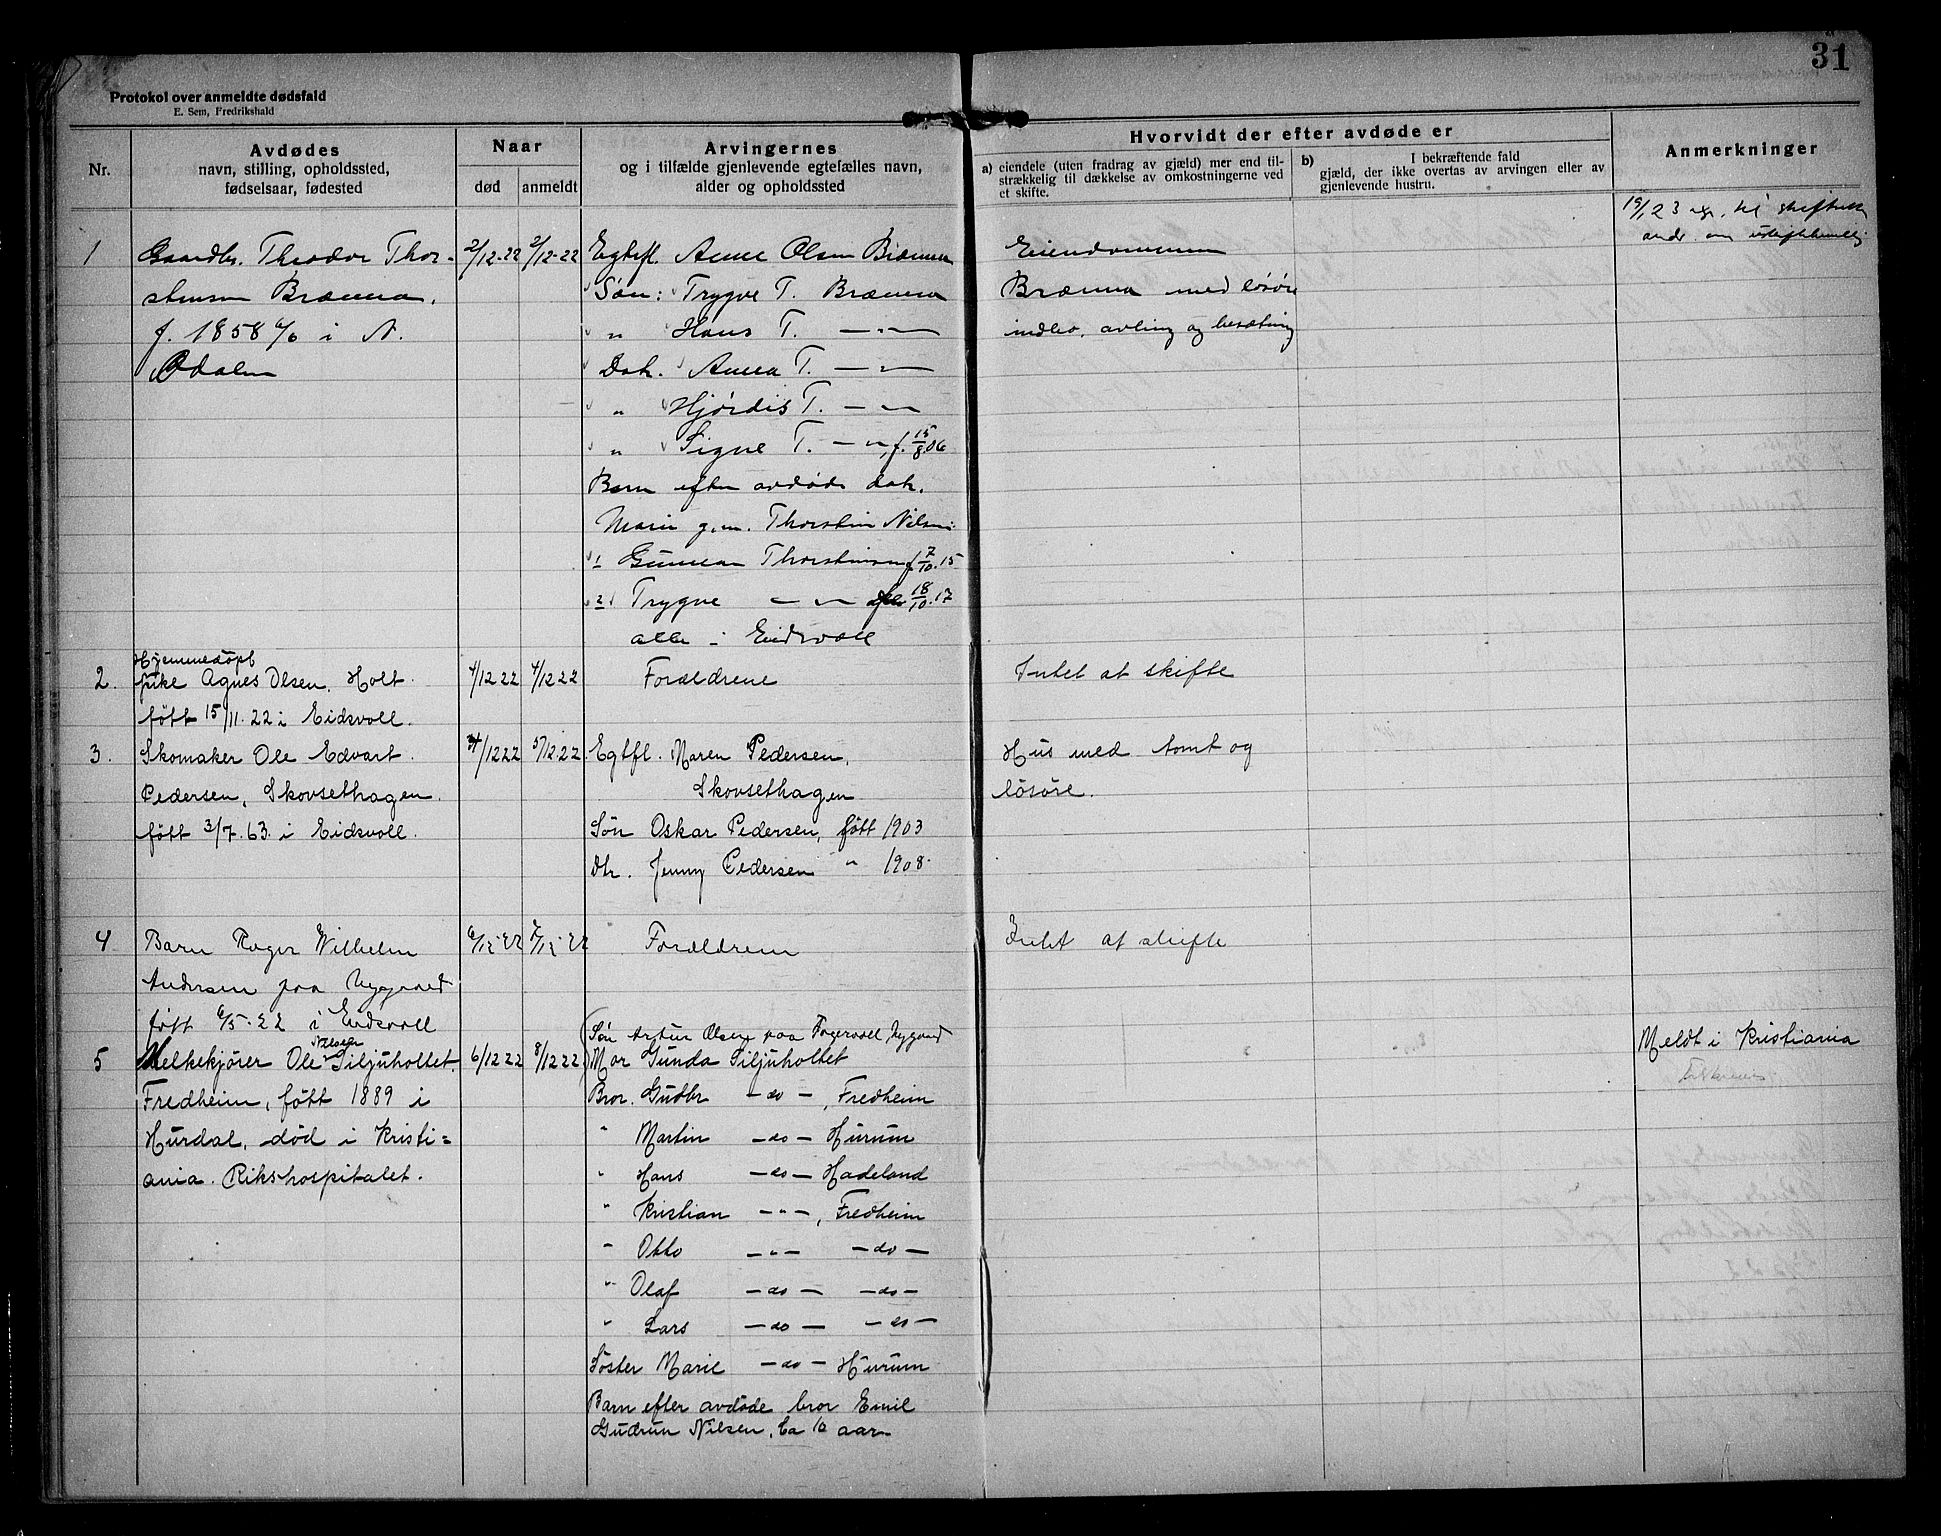 31
Protokol over anmeldte dødsfald
E. Sem, Fredrikshald
Nr.
Avdødes
navn, stilling, opholdssted,
fødselsaar, fødested
Naar
død
anmeldt
Arvingernes
og i tilfælde gjenlevende egtefælles navn,
alder og opholdssted
Hvorvidt der efter avdøde er
a) eiendele (uten fradrag av gjæld) mer end til-
strækkelig til dækkelse av omkostningerne ved
et skifte.
b) I bekræftende fald
gjæld, der ikke overtas av arvingen eller av
gjenlevende hustru.
Anmerkninger
1
Gaardbr. Theodor Thor-
stensen Brænna,
f. 1858 i N.
Odalen
2/12-22 2/12-22
Egtefl. Anne Olsen Brænna
Søn: Trygve T. Brænna
" Hans T. — " —
Dat. Anna T. — " —
" Hjørdis T. — " —
" Signe T. — " —, f. 15/8.06
Barn efter avdøde dat.
Marie g.m. Thorstein Nilsen:
1 Gunnar Thorstensen f 7/10.15
2 Trygve — " — 18/10.17
alle i Eidsvoll
Eiendommen
Brænna med løsøre
indbo, avling og besætning
19/1 23
2.
Hjemmedöpt
pike Agnes Olsen, Holt.
födt 15/11.22 i Eidsvoll.
4/12 22 4/12 22
Forældrene
Intet at skifte
3.
Skomaker Ole Edvart
Pedersen, Skovsethagen.
födt 3/7.63. i Eidsvoll.
4/12 22 5/12.22.
Egtfl. Maren Pedersen,
Skovsethagen
Sön Oskar Pedersen, födt 1903
Dtr. Jenny Pedersen " 1908.
Hus med tomt og
lösöre.
4
Barn Roger Wilhelm
Andersen paa Nygaard
födt 6/5-22 i Eidsvoll
6/12-22 7/12-22
Forældrene
Intet at skifte
5
Melkekjører Ole Nilsen Siljuholtet.
Fredheim, födt 1889 i
Hurdal, död i Kristi=
ania. Rikshospitalet.
6/12 22 8/12 22
Sön Artur Olsen paa Nygaard
Mor Gunda Siljuholtet
Bror. Gudbr — do —, Fredheim
" Martin — do — Hurum
" Hans — do — Hadeland
" Kristian — " —, Fredheim
" Otto — " — — do —
" Olaf — do — — do —
" Lars — do — — do —
Söster Marie — do — Hurum
Barn efter avdöde bror Emil
Gudrun Nilsen, ca 10 aar
Meldt i Kristiania